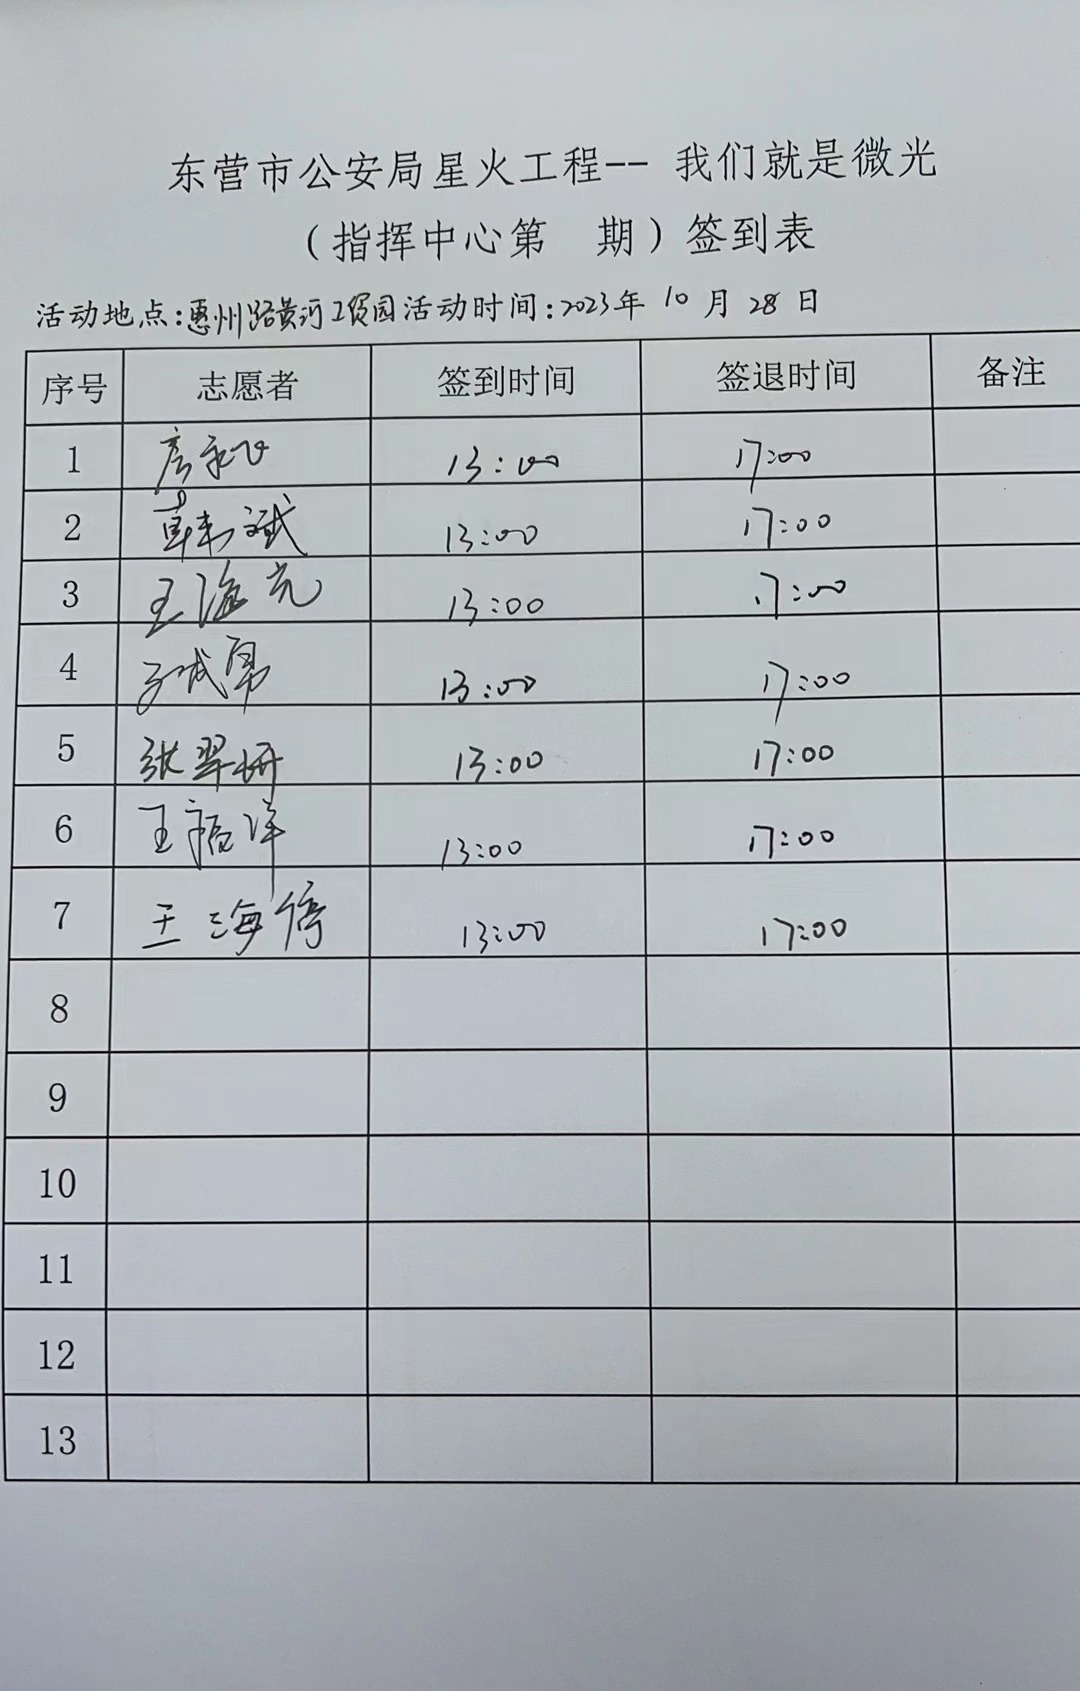 东营市公安局星火工程-- 我们就是微光
（指挥中心第 期）签到表
活动地点:惠州路黄河工贸园活动时间:2023年 10 月 28 日
序号 志愿者 签到时间 签退时间 备注
1 13:00 17:00
2 韩斌 13:00 17:00
3 王海亮 13:00 17:00
4 孙成勇 13:00 17:00
5 张翠妍 13:00 17:00
6 王福洋 13:00 17:00
7 王海倩 13:00 17:00
8
9
10
11
12
13